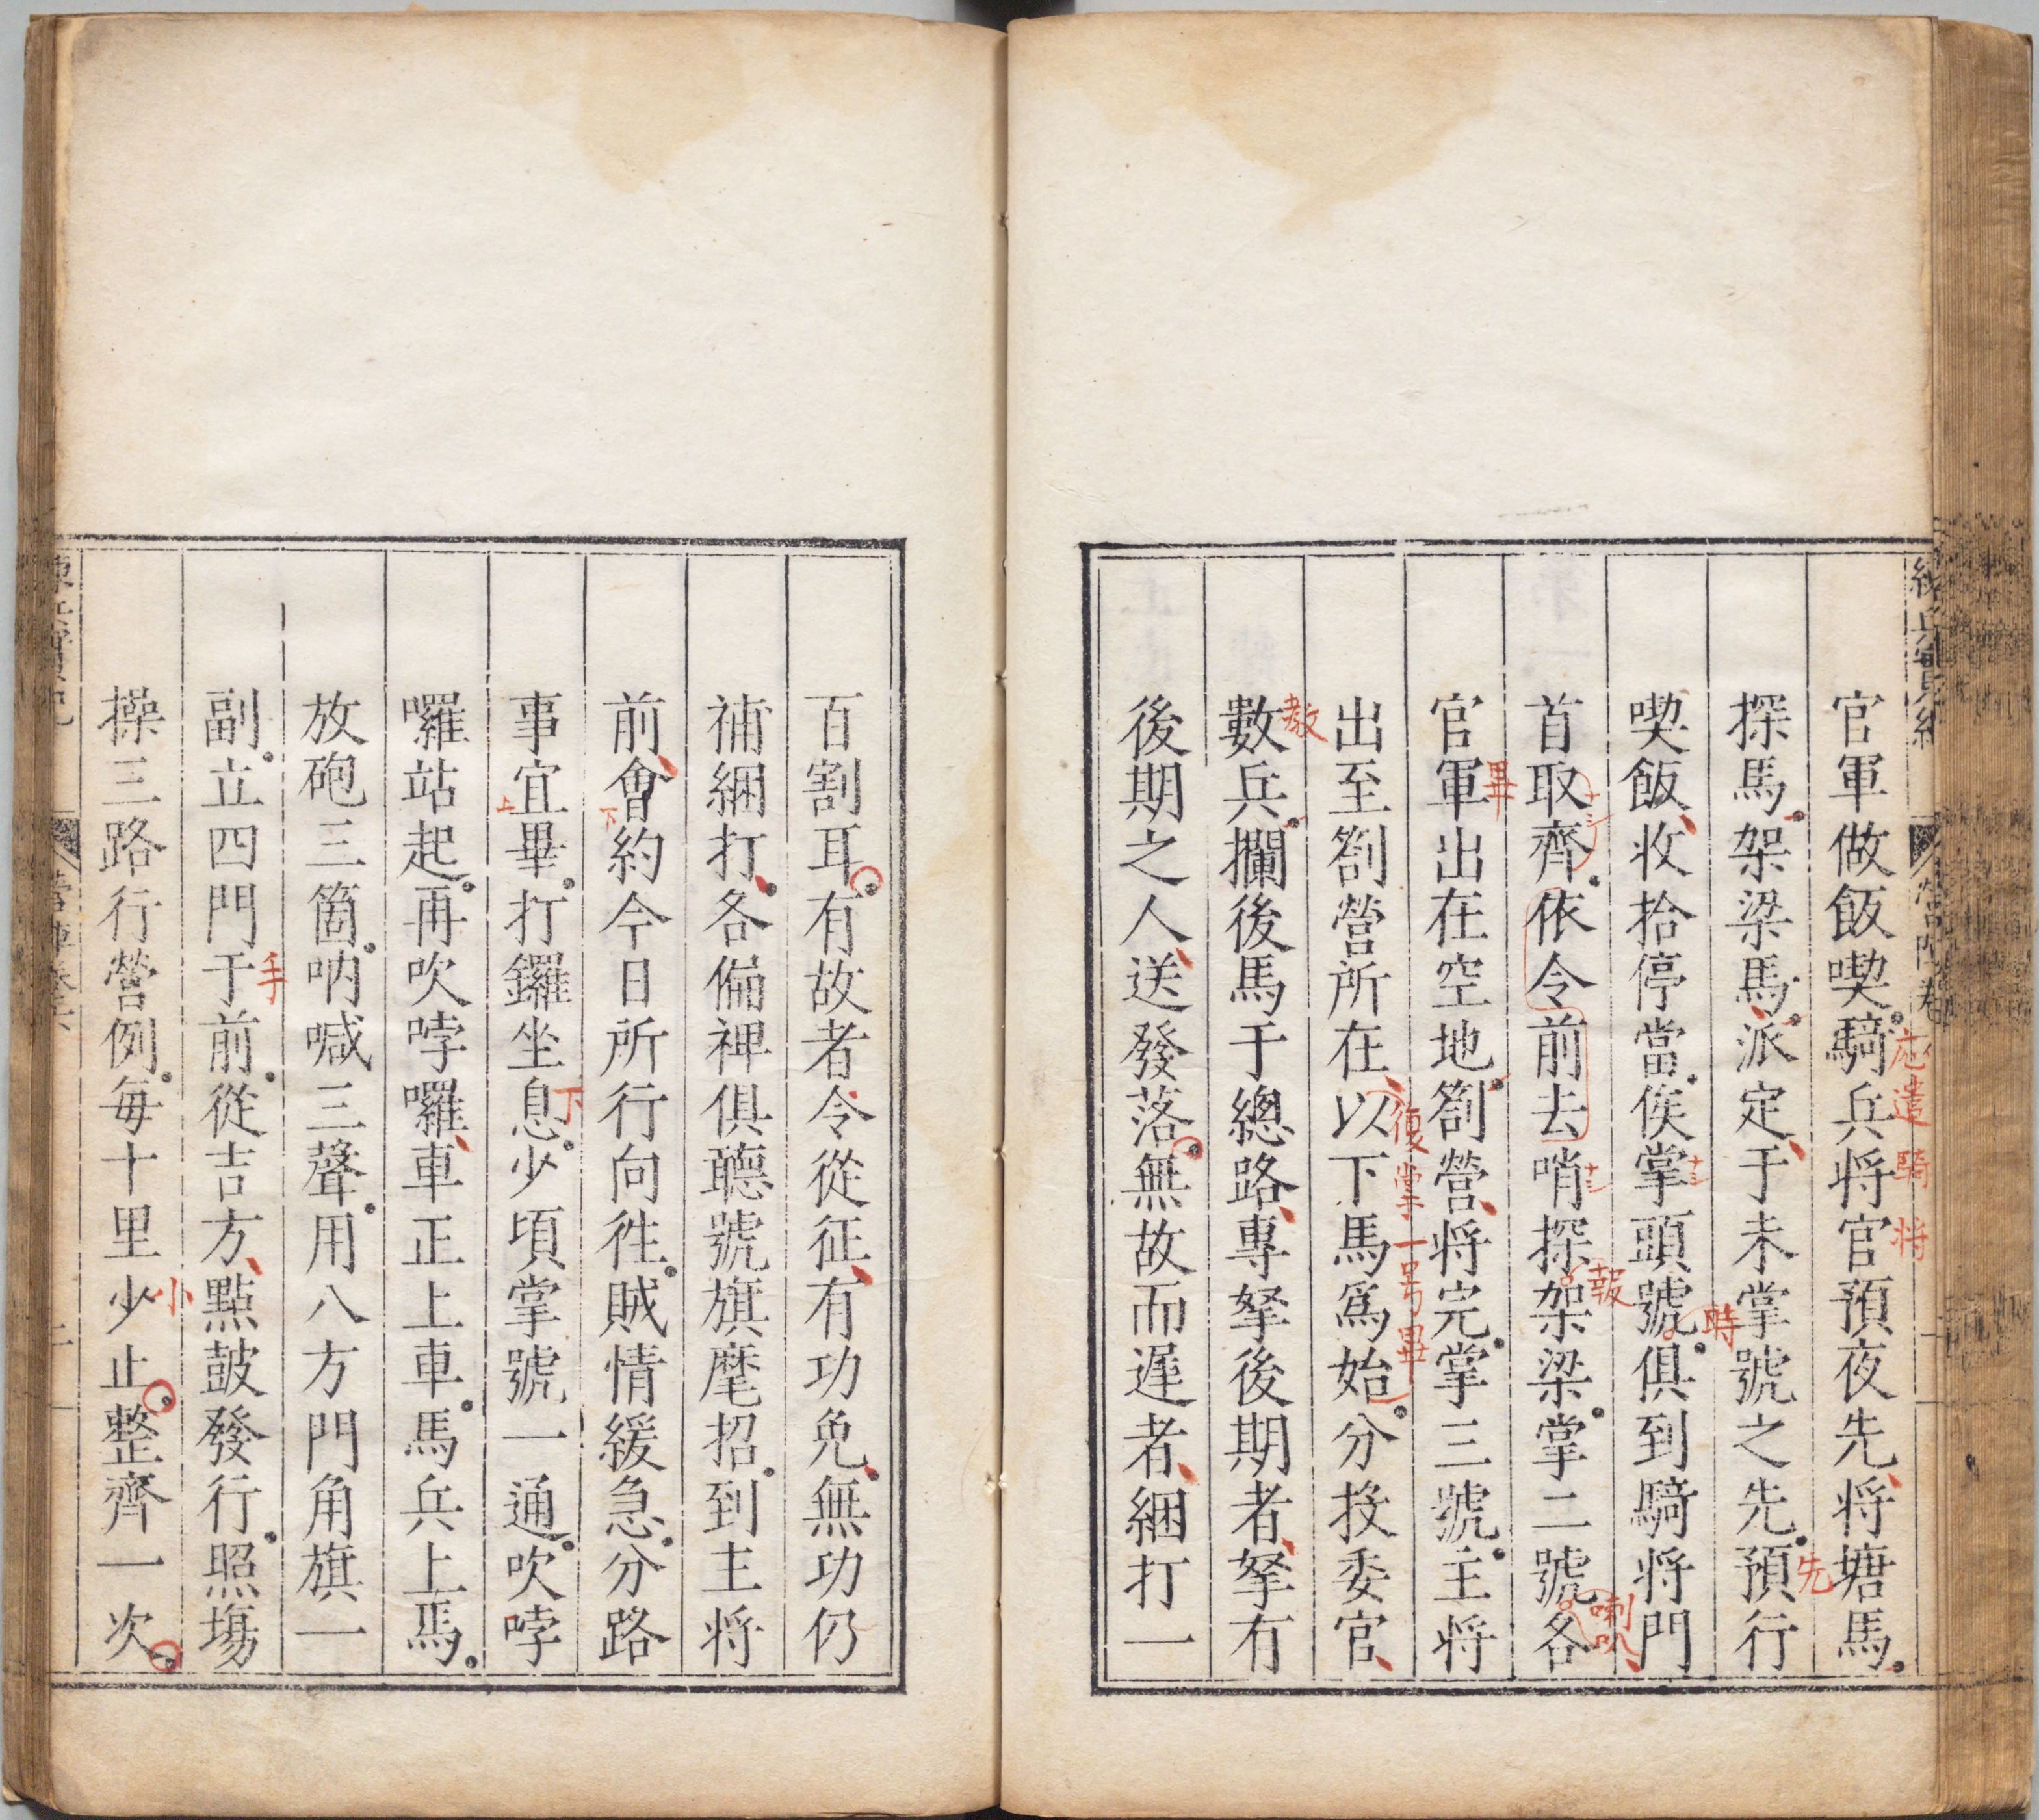 官軍做飯喫騎兵将官預夜先将塘馬
應遣騎将
探馬架梁馬派定于未掌號之先預行
先
喫飯收拾停當俟掌頭號俱到騎将門
時
首取齊依令前去哨探架梁掌二號各
報
喇叭
官軍出在空地劄營将完掌三號主将
畢
出至劄營所在以下馬爲始分投委官
復掌一号畢
數兵攔後馬于總路專拏後期者拏有
教
後期之人送發落無故而遲者綑打一
百割耳有故者令從征有功免無功仍
補綑打各偏裨俱聽號旗麾招到主将
前會約今日所行向徃賊情緩急分路
下
事宜畢打鑼坐息少頃掌號一通吹哱
上
下
囉站起再吹哱囉車正上車馬兵上馬
放砲三箇吶喊三聲用八方門角旗一
副立四門于前從吉方點鼓發行照塲
手
操三路行營例每十里少止整齊一次
小